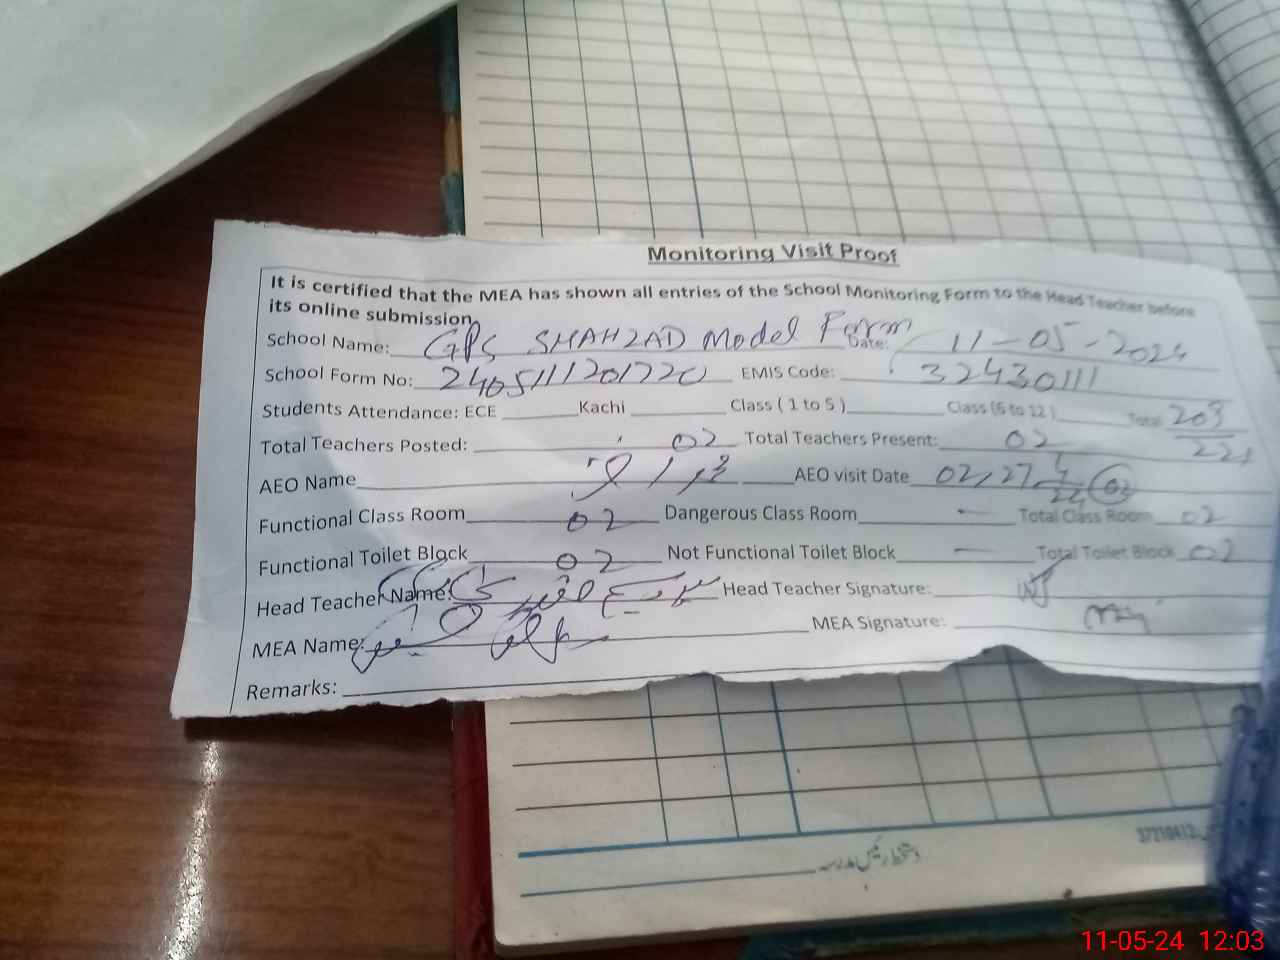 Monitoring Visit Proof
It is certified that the MEA has shown all entries of the School Monitoring Form to the Head Teacher before
its online submission.
School Name: GPS SHAHZAD Model Farm Date: 11-05-2024
School Form No: 2405111201720 EMIS Code: 32430111
Students Attendance: ECE ______ Kachi ______ Class ( 1 to 5 ) ______ Class (6 to 12 ) ______ Total 203
Total Teachers Posted: 02 Total Teachers Present: 02
AEO Name AEO visit Date 02, 27
Functional Class Room 02 Dangerous Class Room - Total Class Room 02
Functional Toilet Block 02 Not Functional Toilet Block - Total Toilet Block 02
Head Teacher Name: Head Teacher Signature:
MEA Name: MEA Signature:
Remarks:
دستخط رئیس مدرسہ
37210412
11-05-24 12:03